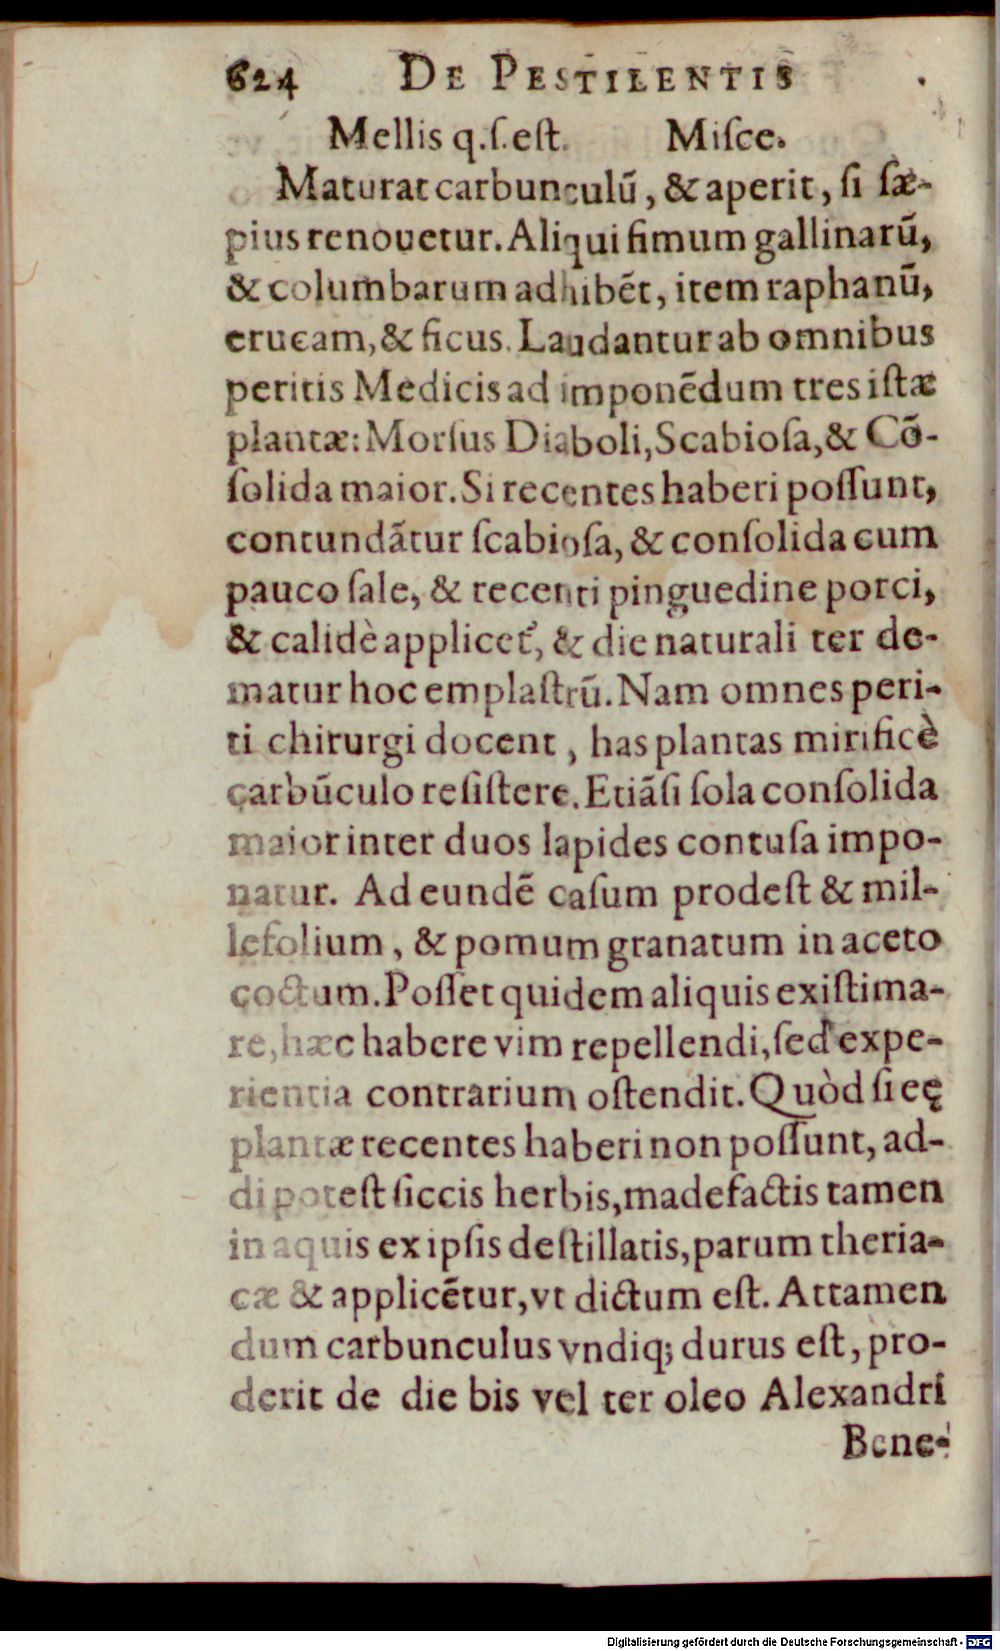 624 DE PESTILENTIS
Mellis q.ſ.eſt. Miſce.
Maturat carbunculũ, & aperit, ſi ſæ-
pius renouetur. Aliqui fimum gallinarũ,
& columbarum adhibẽt, item raphanũ,
erucam, & ficus. Laudantur ab omnibus
peritis Medicis ad imponẽdum tres iſtæ
plantæ: Morſus Diaboli, Scabioſa, & Cõ-
ſolida maior. Si recentes haberi poſſunt,
contundãtur ſcabioſa, & conſolida cum
pauco ſale, & recenti pinguedine porci,
& calidè applicet᷑, & die naturali ter de-
matur hoc emplaſtrũ. Nam omnes peri-
ti chirurgi docent, has plantas mirificè
carbũculo reſiſtere. Etiãſi ſola conſolida
maior inter duos lapides contuſa impo-
natur. Ad eundẽ caſum prodeſt & mil-
lefolium, & pomum granatum in aceto
coctum. Poſſet quidem aliquis exiſtima-
re, hæc habere vim repellendi, ſed expe-
rientia contrarium oſtendit. Quòd ſi eę
plantæ recentes haberi non poſſunt, ad-
di poteſt ſiccis herbis, madefactis tamen
in aquis ex ipſis deſtillatis, parum theria-
cæ & applicẽtur, vt dictum eſt. Attamen
dum carbunculus vndiq; durus eſt, pro-
derit de die bis vel ter oleo Alexandri
Bene-
Digitalisierung gefördert durch die Deutsche Forschungsgemeinschaft - DFG